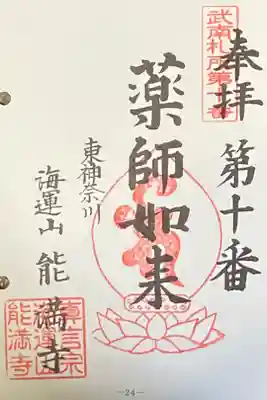 奉拝
第十番
武南札所第十番
薬師如来
東神奈川
海運山 能満寺
真言宗
海運山
能満寺
—24—